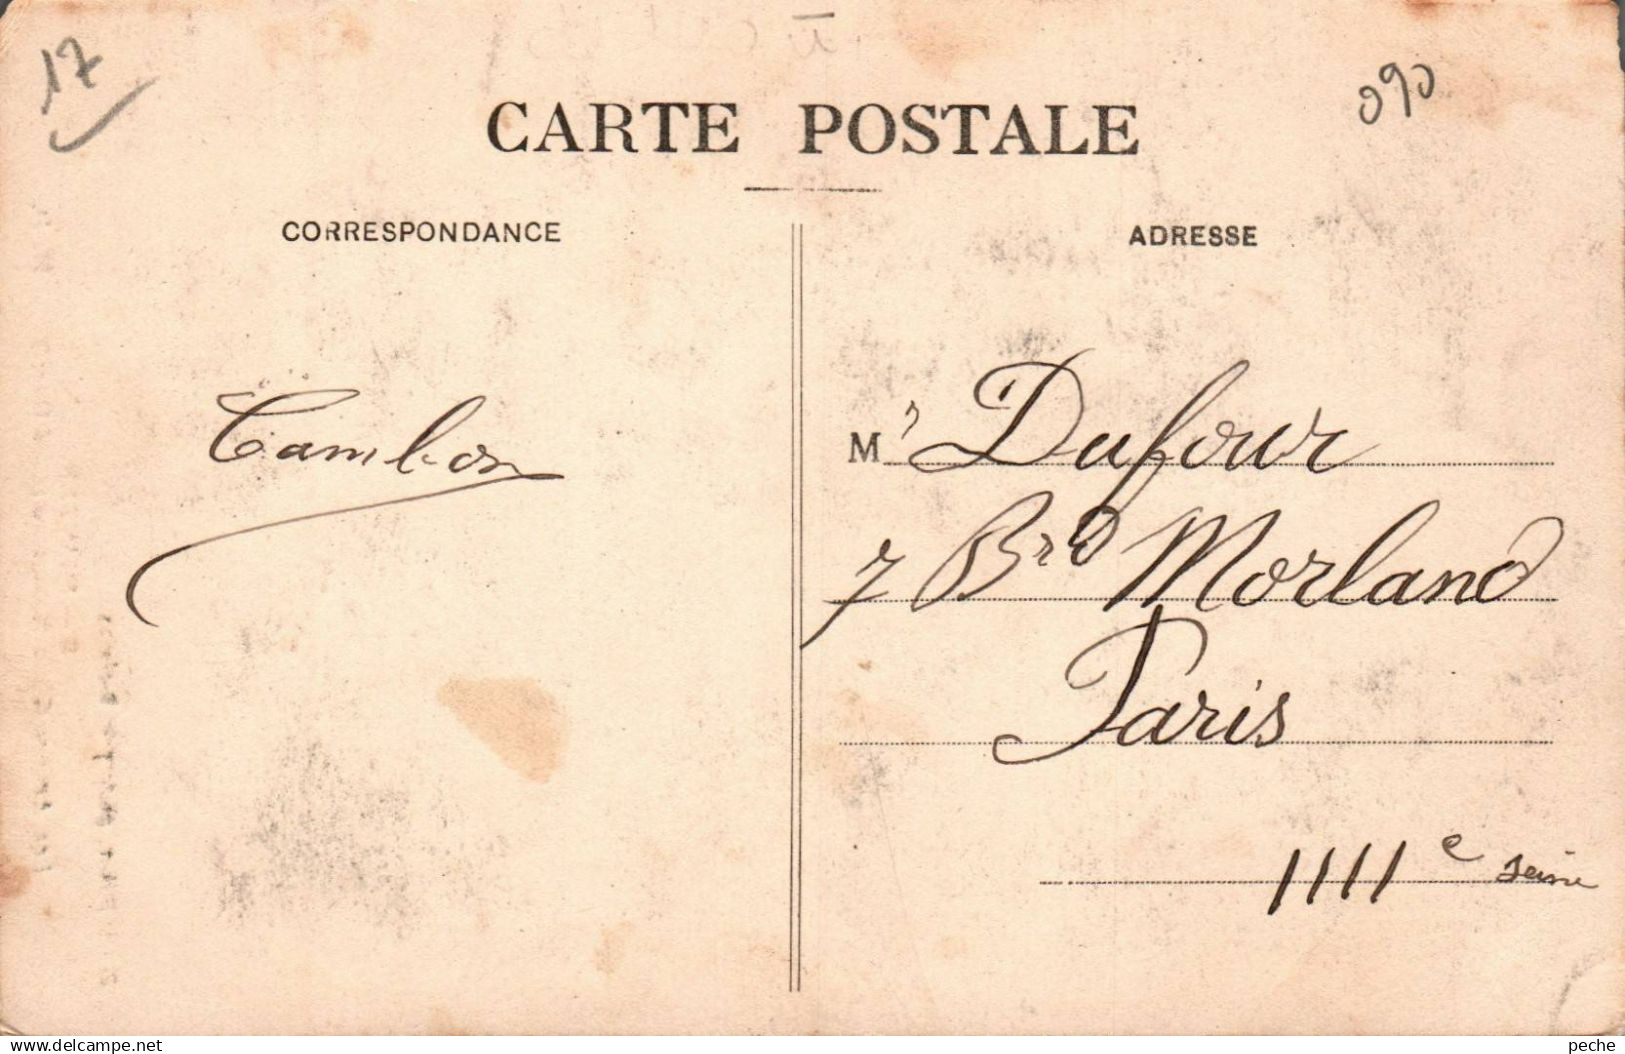 17
090
CARTE POSTALE
CORRESPONDANCE
ADRESSE
Cambon
Mr Dufour
7 Brd Morland
Paris
1111e seine
www.delcampe.net
peche